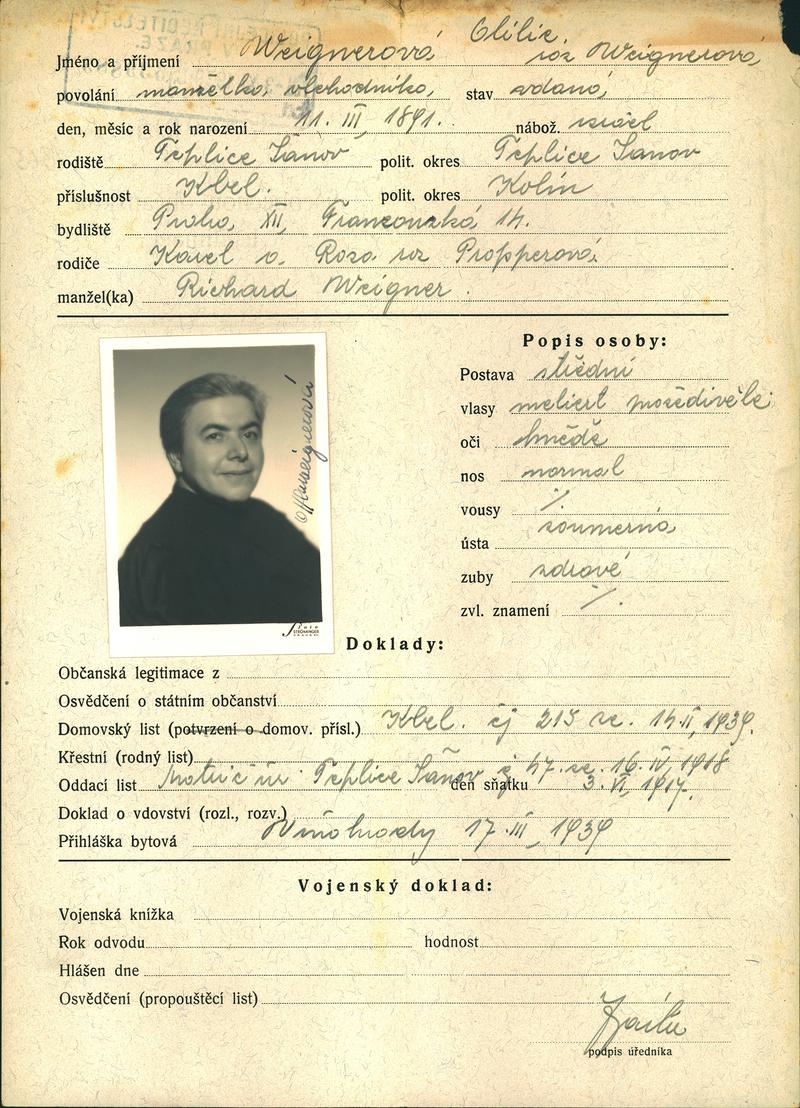 Jméno a příjmení Weignerová Otilie. roz Weignerová,
povolání manželka obchodníka, stav vdaná,
den, měsíc a rok narození 11. III, 1891. nábož. israel
rodiště Teplice Šanov polit. okres Teplice Šanov
příslušnost Kbel. polit. okres Kolín
bydliště Praha, XII, Francouzká 14.
rodiče Karel a Rosa roz Propperová.
manžel(ka) Richard Weigner.
Popis osoby:
Postava střední
vlasy melírt prošedivělé
oči hnědé
nos normal
vousy ./.
ústa souměrná
zuby zdravé
zvl. znamení ./.
Weignerová
Foto
STRÖMINGER
Doklady:
Občanská legitimace z
Osvědčení o státním občanství
Domovský list (potvrzení o domov. přísl.) Kbel. čj 215 ze. 14.II, 1939.
Křestní (rodný list)
Oddací list Matrič úř. Teplice Šanov č 47. ze. 16. IV, 1918
den sňatku 3. VI, 1917.
Doklad o vdovství (rozl., rozv.)
Přihláška bytová Vinohrady 17. III, 1939
Vojenský doklad:
Vojenská knížka
Rok odvodu hodnost
Hlášen dne
Osvědčení (propouštěcí list)
podpis úředníka